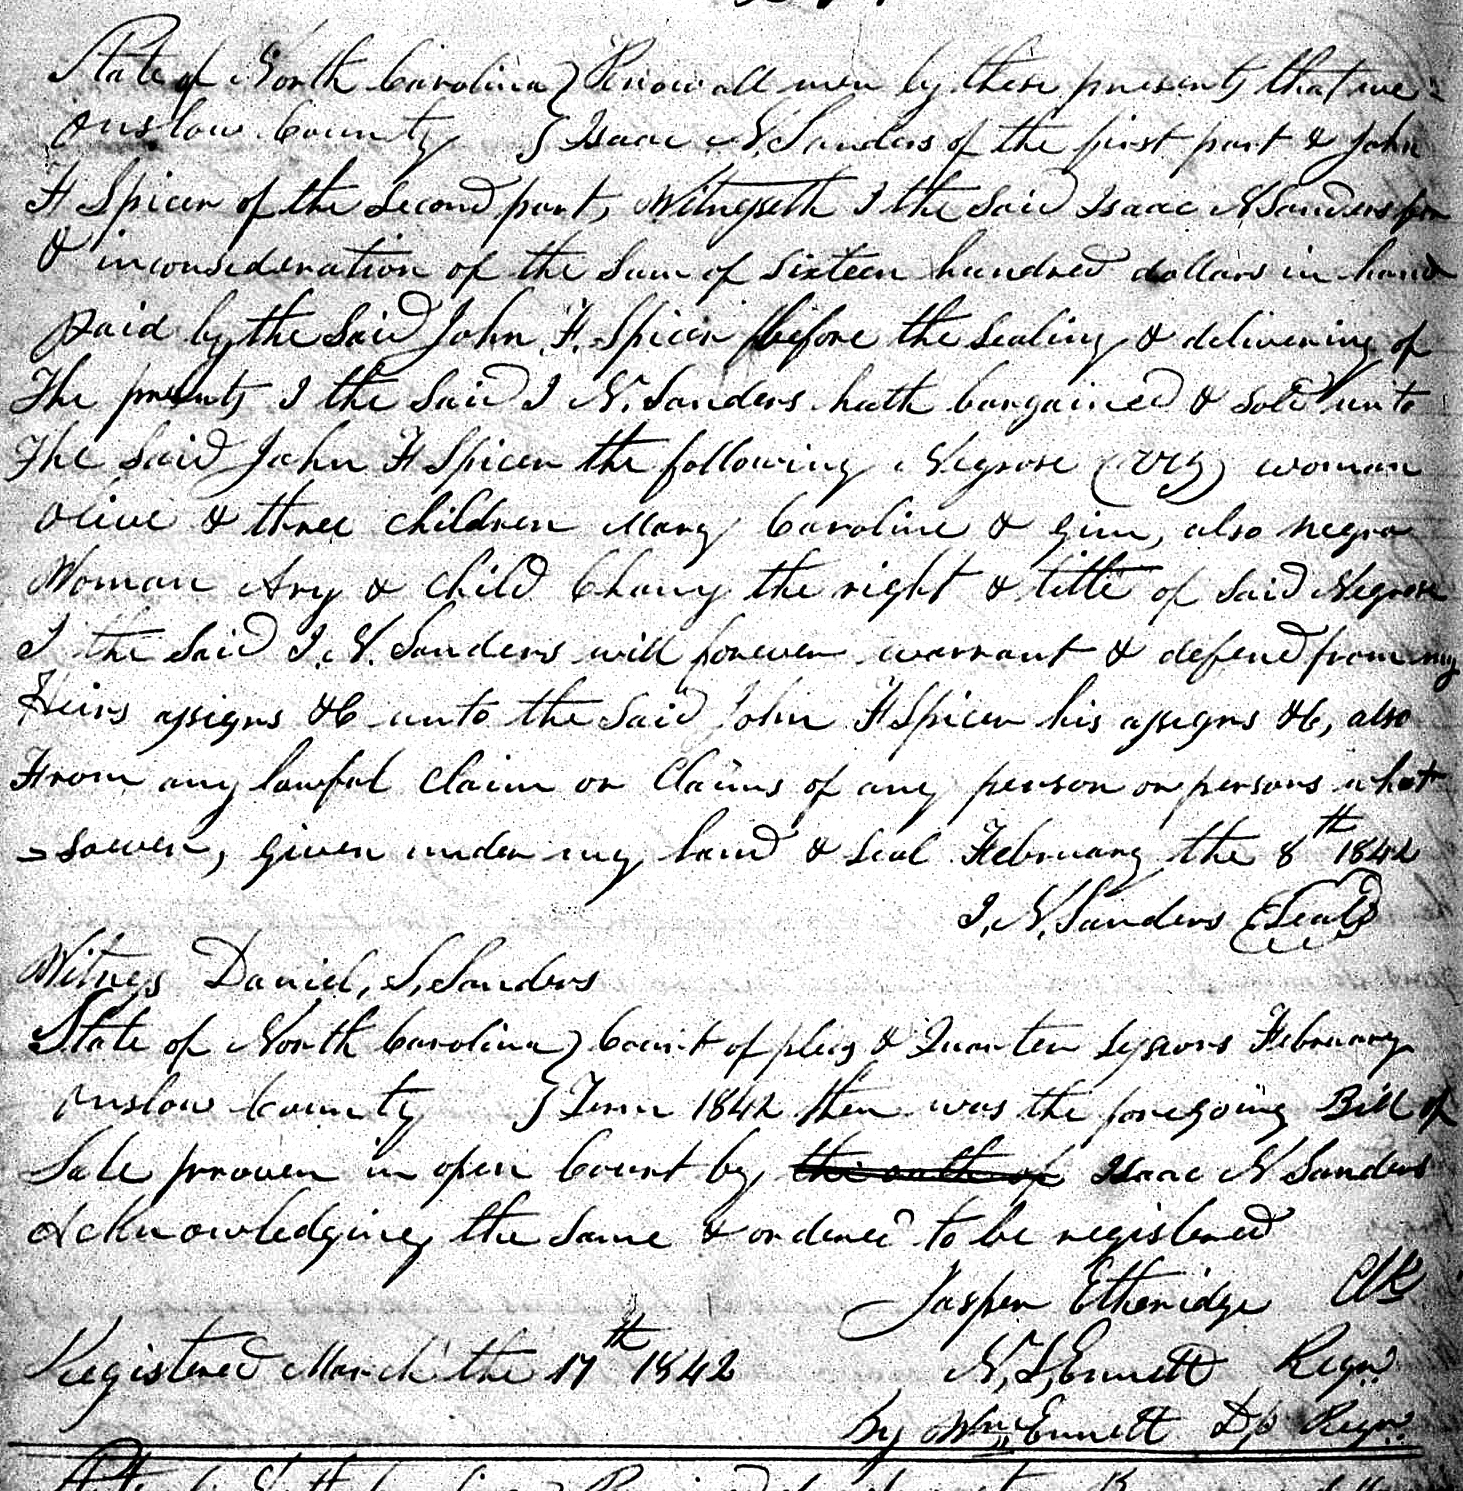 State of North Carolina } Know all men by these presents that we
Onslow County } Isaac N. Sanders of the first part & John
H Spicer of the Second part, Witnesseth I the Said Isaac N Sanders for
& inconsideration of the Sum of Sixteen hundred dollars in hand
paid by the Said John H. Spicer before the Sealing & delivering of
The presents I the Said I N. Sanders hath bargained & sold unto
The Said John H Spicer the following Negrose (viz) woman
Olive & three children Mary Caroline & Gim, also negro
Woman Ary & child Chany the right & title of Said Negrose
I the Said I. N. Sanders will forever warrant & defend from my
Heirs assigns &C unto the Said John H Spicer his assigns &c, also
From any lawful Claim or Claims of any person or persons what
-soever, given under my hand & Seal February the 8th 1842
I. N. Sanders (Seal)
Witness Daniel, S, Sanders
State of North Carolina } Court of pleas & Quarter Sessions February
Onslow County } Term 1842 then was the foregoing Bill of
Sale proven in open Court by the oath of Isaac N Sanders
Acknowledging the Same & ordered to be registered
Jasper Etheridge Clk
Registered March the 17th 1842 N, L, Ennett Regr
By Wm Ennett Dp Regr